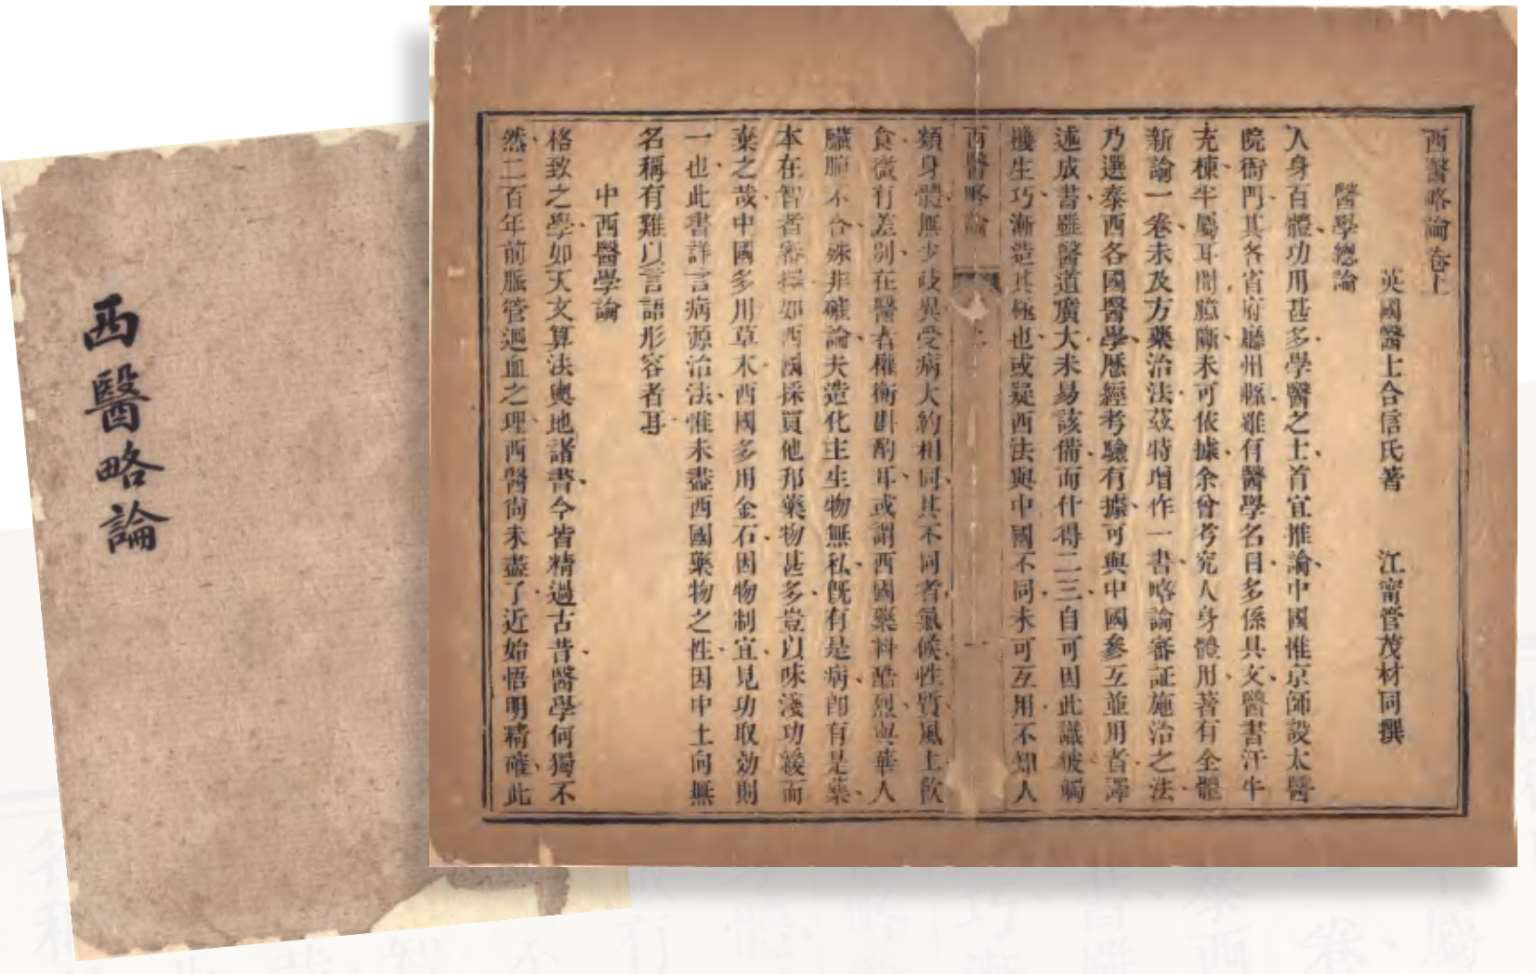 西醫略論
西醫略論卷上
英國醫士合信氏著 江甯管茂材同撰
醫學總論
人身百體功用甚多學醫之士首宜推論中國惟京師設太醫
院衙門其各省府廳州縣雖有醫學名目多係具文醫書汗牛
充棟半屬耳聞臆斷未可依據余曾考究人身體用著有全體
新論一卷未及方藥治法茲特增作一書略論審証施治之法
乃選泰西各國醫學歷經考驗有據可與中國參互並用者譯
述成書雖醫道廣大未易該備而什得二三自可因此識彼觸
機生巧漸造其極也或疑西法與中國不同未可互用不知人
西醫略論 一
類身體無少歧異受病大約相同其不同者氣候性質風土飲
食微有差別在醫者權衡斟酌耳或謂西國藥料酷烈與華人
臟腑不合殊非確論夫造化主生物無私既有是病卽有是藥
本在智者審擇如西國採買他邦藥物甚多豈以味淺功緩而
棄之哉中國多用草木西國多用金石因物制宜見功取効則
一也此書詳言病源治法惟未盡西國藥物之性因中土向無
名稱有難以言語形容者耳
中西醫學論
格致之學如天文算法輿地諸書今皆精過古昔醫學何獨不
然二百年前脈管迴血之理西醫尚未盡了近始悟明精確此